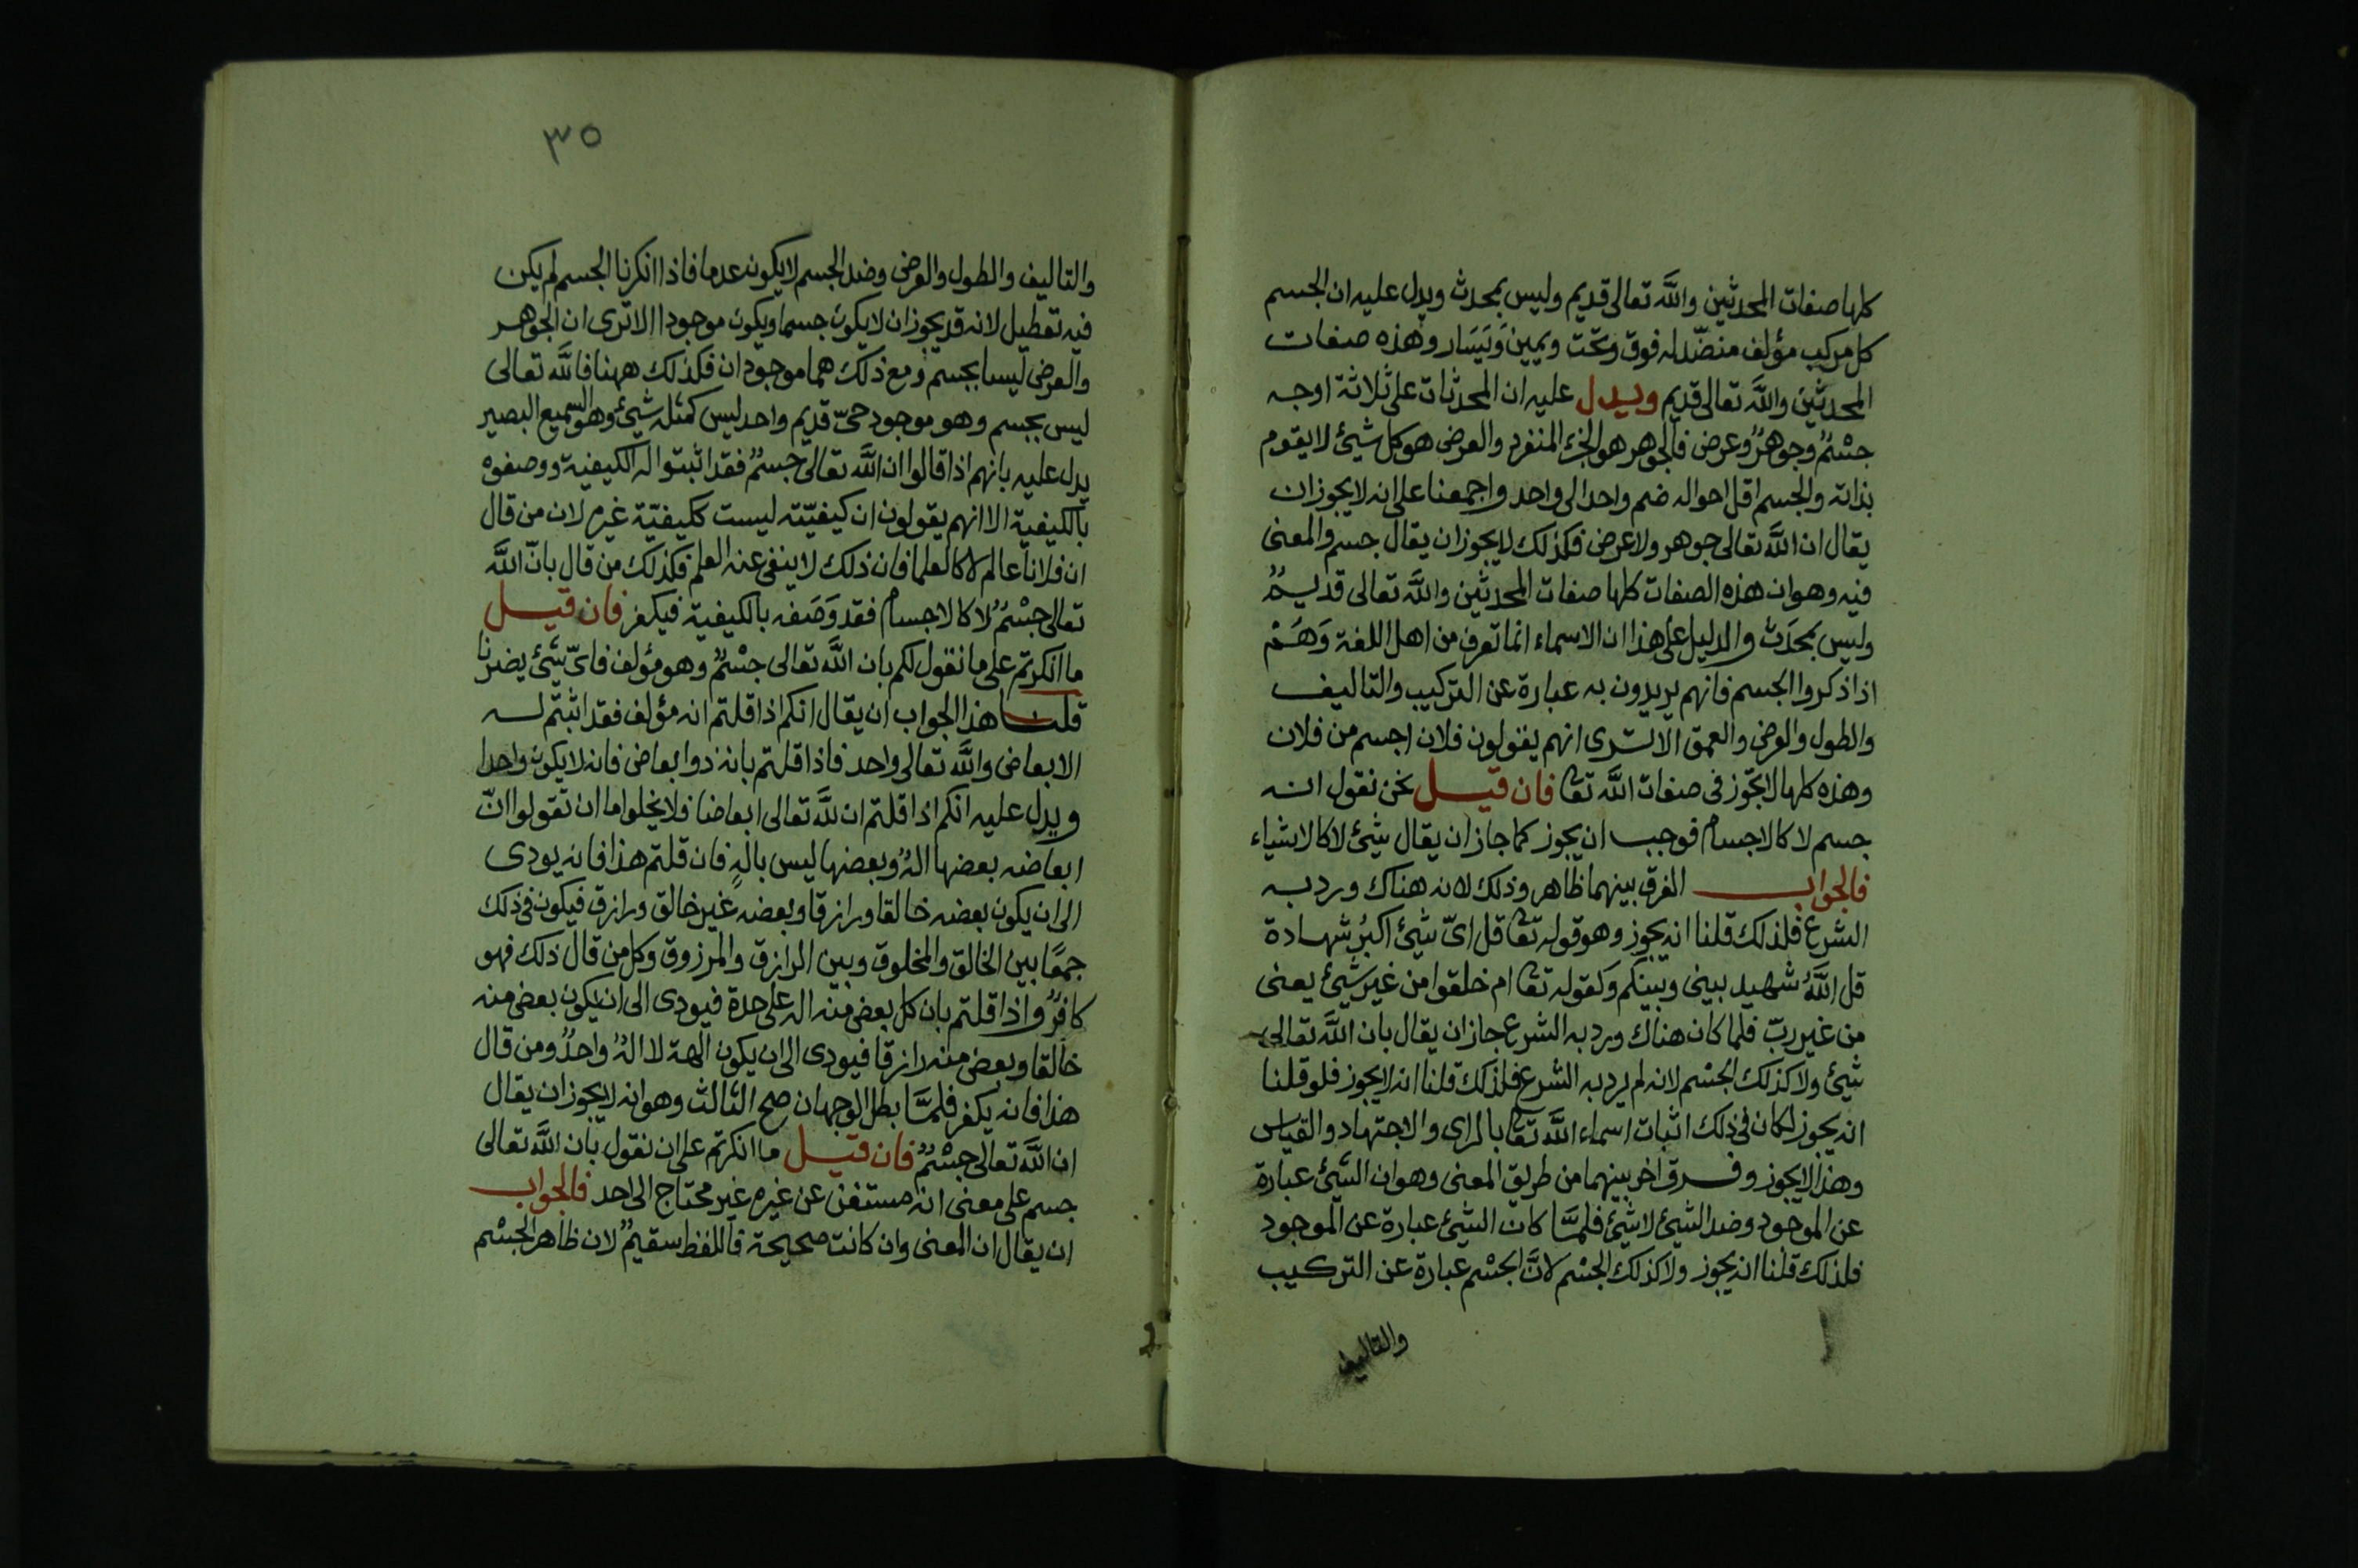 كلها صفات المحدثين والله تعالى قديم وليس بمحدث ويدل عليه ان الجسم
كل مركب مؤلف منضّد له فوق وتحت ويمين وَيَسَار وهذه صفات
المحدثين والله تعالى قديم ويدل عليه ان المحدثات على ثلاثة اوجه
جسْمٌ وجوهرٌ وعرض فالجوهر هو الجزء المنفرد والعرض هو كل شيئ لا يقوم
بذاته والجسم اقل احواله ضم واحد الى واحد واجمعنا على انه لا يجوز ان
يقال ان الله تعالى جوهر ولا عرض فكذلك لا يجوز ان يقال جسم والمعنى
فيه وهو ان هذه الصفات كلها صفات المحدثين والله تعالى قديمٌ
وليس بمحدَث والدليل على هذا ان الاسماء انما تعرف من اهل اللغة وَهَمْ
اذا ذكروا الجسم فانهم يريدون به عبارة عن التركيب والتاليف
والطول والعرض والعمق الا ترى انهم يقولون فلان اجسم من فلان
وهذه كلها لا تجّوز فى صفات الله تعا فان قيل نحن نقول انه
جسم لا كالاجسام فوجب ان يجوز كما جاز ان يقال شيئ لا كالاشياء
فالجواب الفرق بينهما ظاهر وذلك لانه هناك ورد به
الشرع فلذلك قلنا انه يجوز وهو قوله تعا قل اىّ شيئ اكبرُ شهادة
قل اللهُ شهيد بينى وبينكم وكقوله تعا ام خلقوا من غير شيئ يعنى
من غير ربّ فلما كان هناك ورد به الشرع جاز ان يقال بان الله تعالى
شيئ ولا كذلك الجسْم لانه لم يرد به الشرع فلذلك قلنا انه لا يجوز فلو قلنا
انه يجوز لكان فى ذلك اثبات اسماء الله تعا بالراى والاجتهاد والقياس
وهذا لا يجوز وفرق اخر بينهما من طريق المعنى وهو ان الشيئ عبارة
عن الموجود وضد الشيئ لا شيئ فلمّا كان الشيئ عبارة عن الموجود
فلذلك قلنا انه يجوز ولا كذلك الجسْم لانّ الجسْم عبارة عن التركيب
والتاليف
٣٥
والتاليف والطول والعرض وضد الجسم لا يكون عدما فاذا انكرنا الجسم لم يكن
فيه تعطيل لانه قد يجوز ان لا يكون جسما ويكون موجودا الا ترى ان الجوهر
والعرض ليسا بجسم ومع ذلك هما موجودان فكذلك ههنا فالله تعالى
ليس بجسم وهو موجود حىّ قديم واحد ليس كمثله شيئ وهو السميع البصير
يدل عليه بانهم اذا قالوا ان الله تعالى جسمٌ فقد اثبتوا له الكيفية ووصفوه
بالكيفية الا انهم يقولون ان كيفيّته ليست ككيفيّة غيره لان من قال
ان فلانا عالم لا كالعلما فان ذلك لا ينفى عنه العلم فكذلك من قال بانّ الله
تعالى جسْمٌ لا كالاجسام فقد وَصَفه بالكيفية فيكفر فان قيل
ما انكرتم على ما نقول لكم بان الله تعالى جسْمٌ وهو مؤلف فاىّ شيئ يضرنا
قلنا هذا الجواب ان يقال انكم اذا قلتم انه مؤلف فقد اثبتم له
الابعاض والله تعالى واحد فاذا قلتم بانه ذوا بعاض فانه لا يكون واحدا
ويدل عليه انكم اذا قلتم ان لله تعالى ابعاضا فلا يخلوا ما ان تقولوا انّ
ابعاضه بعضها الهٌ وبعضها ليس بالهٍ فان قلتم هذا فانه يودى
الى ان يكون بعضه خالقا ورازقا وبعضه غير خالق ورازق فيكون فى ذلك
جمعًا بين الخالق والمخلوق وبين الرازق والمرزوق وكل من قال ذلك فهو
كافرٌ واذا قلتم بان كل بعض منه اله على حدة فيودى الى ان يكون بعض منه
خالقا وبعض منه رازقا فيودى الى ان يكون آلهة لا الهٌ واحدٌ ومن قال
هذا فانه يكفر فلمّا بطل الوجهان صح الثالث وهو انه لا يجوز ان يقال
ان الله تعالى جسْمٌ فان قيل ما انكرتم على ان نقول بان الله تعالى
جسم على معنى انه مستغن عن غيره غير محتاج الى احد فالجواب
ان يقال ان المعنى وان كانت صحيحة فاللفظ سقيمٌ لان ظاهر الجسْم